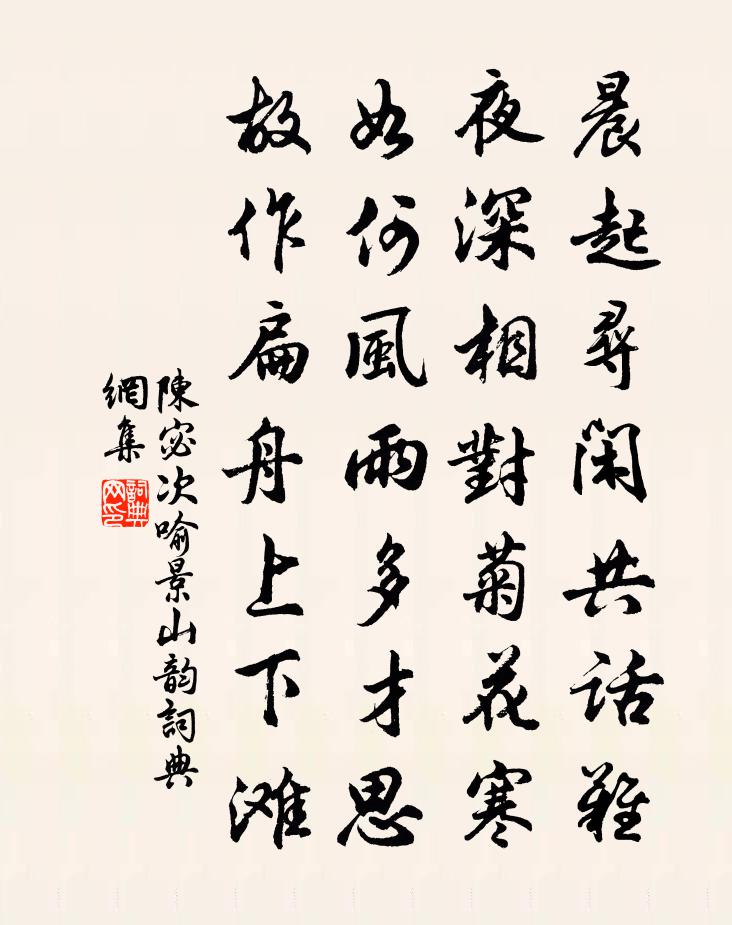 晨起尋閑共話難
夜深相對菊花寒
如何風雨多才思
故作扁舟上下滩
陳宓次喻景山韵詞典
網集
詞典
网印